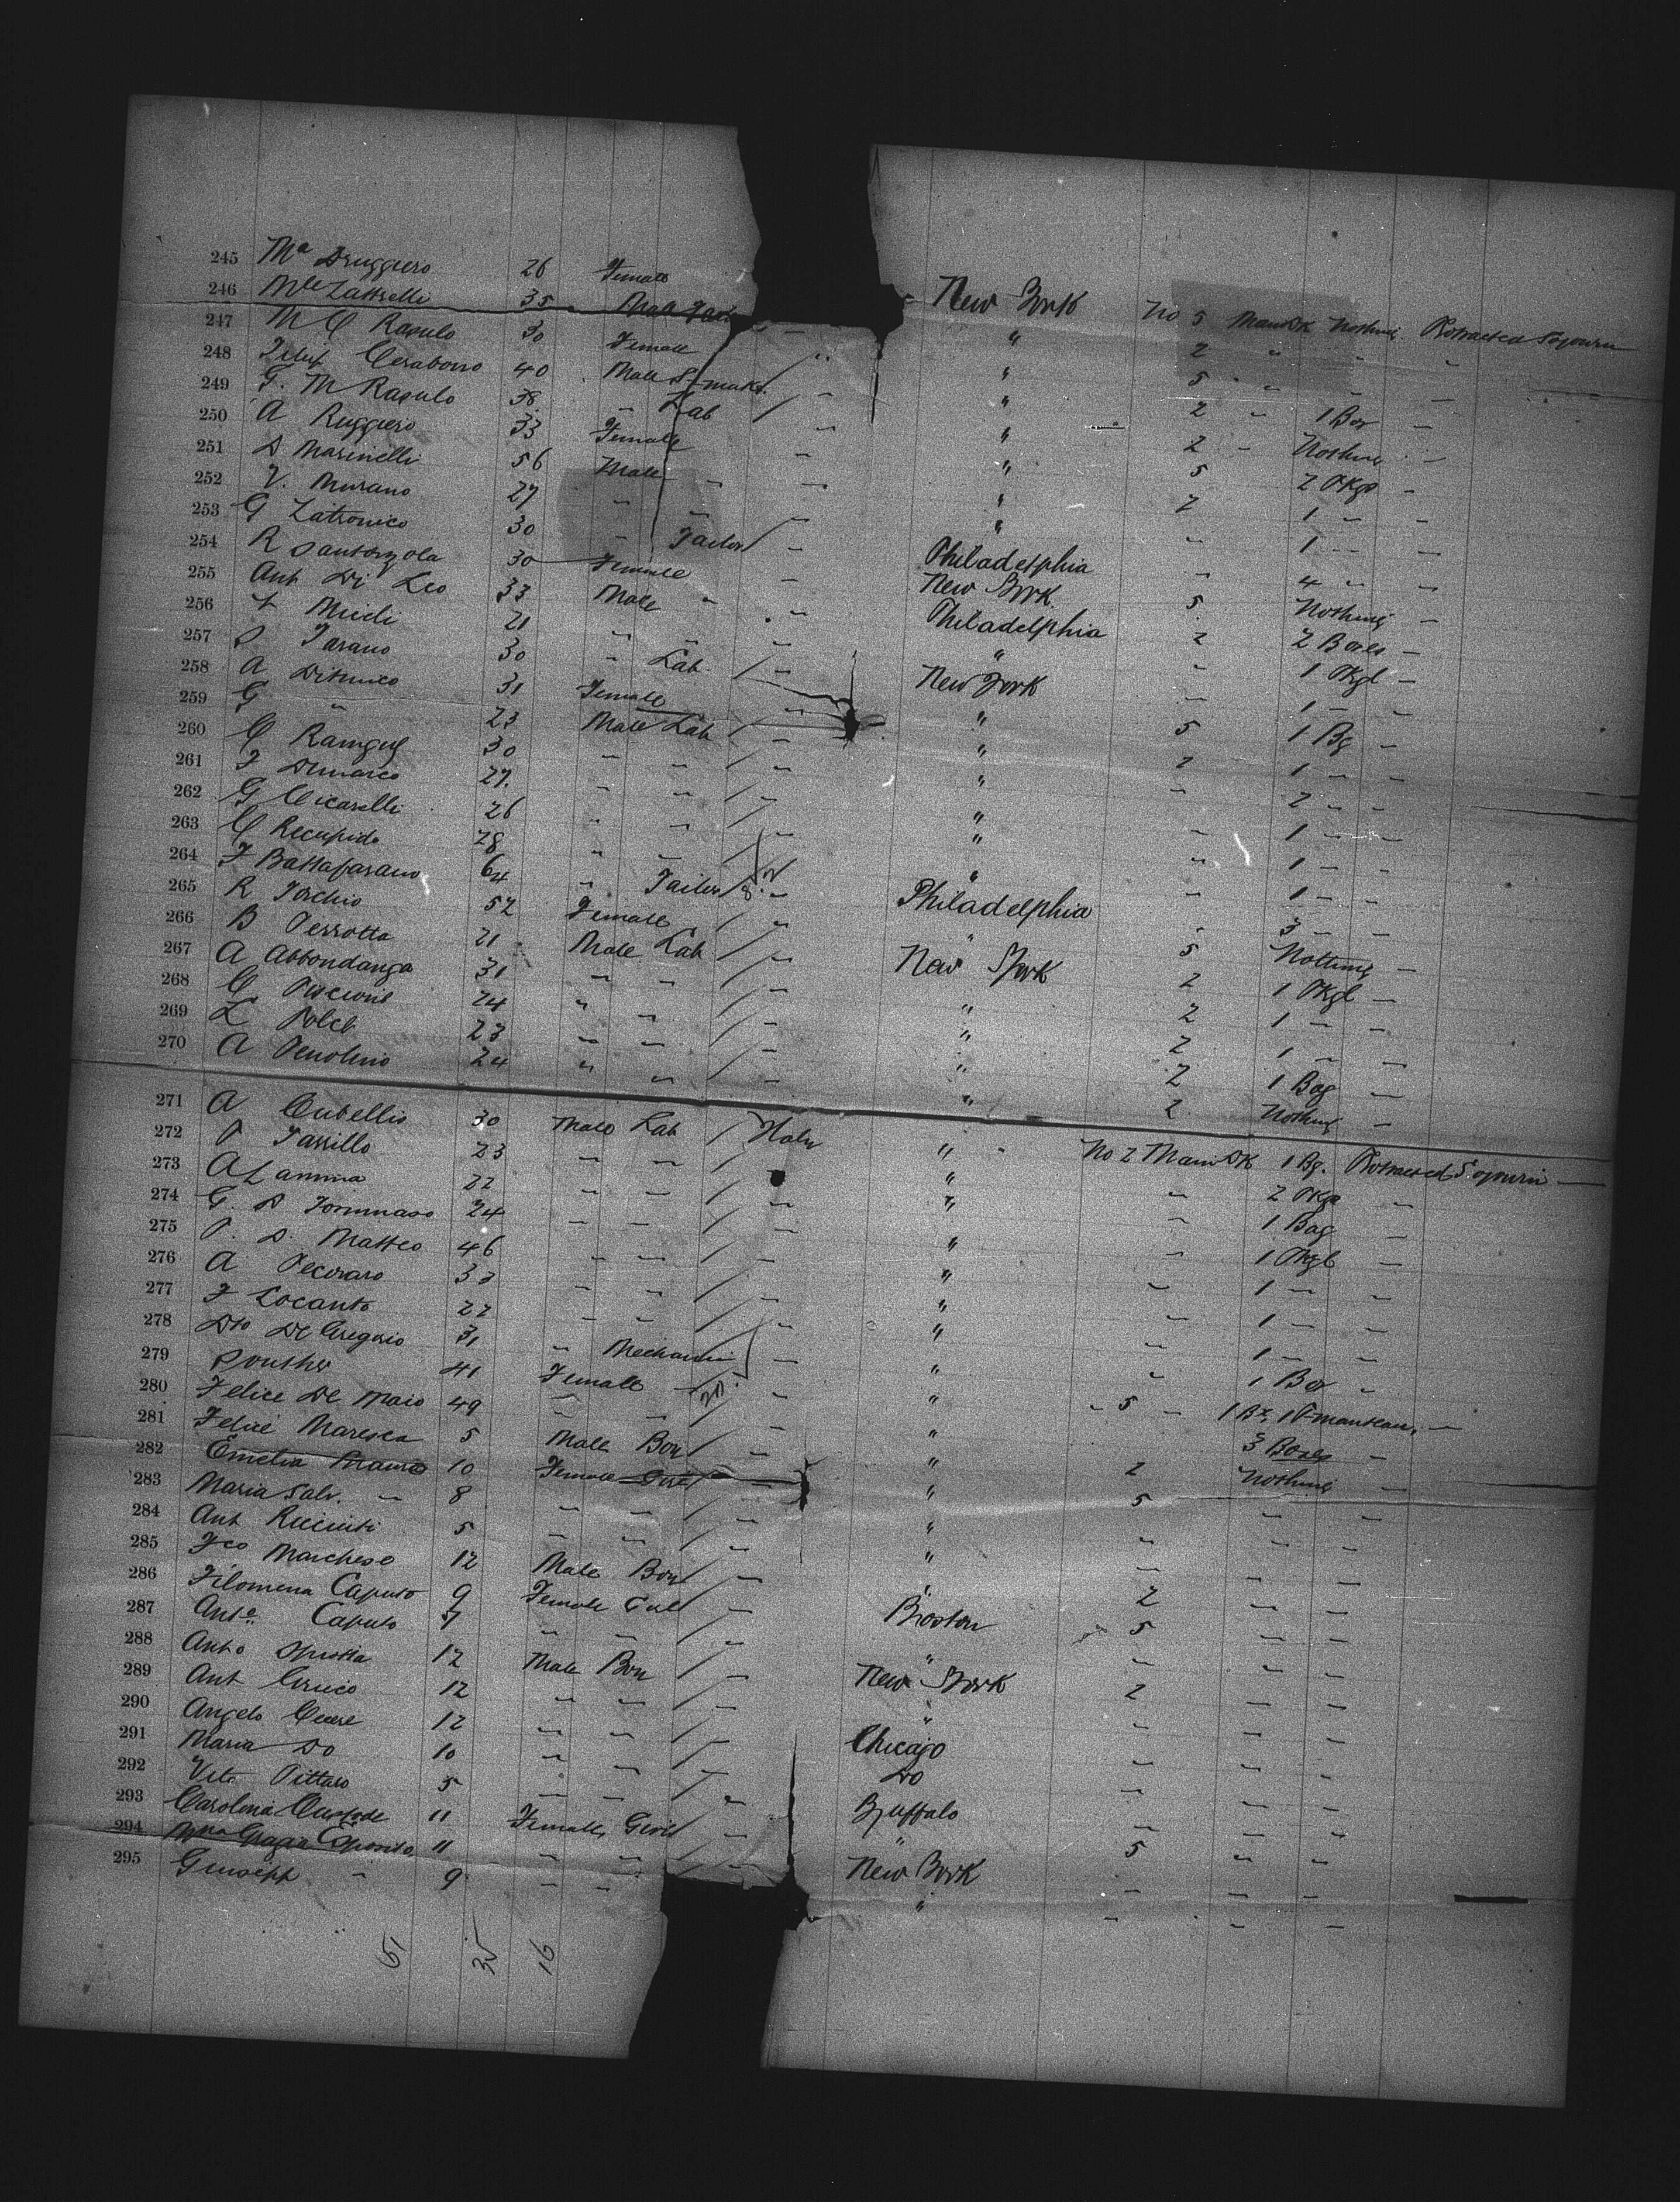 245 Ma Druggiero 26 Female New York No 5 Main Dk Nothing Protracted Sojourn
246 Mle Zattrelli 35 Male " 2 " " "
247 M C Rapulo 30 Female " 5 " "
248 Cerabono 40 Male S-maker " 2 " 1 Box "
249 G. M Rapulo 38 " Lab / " " 2 " Nothing "
250 A Ruggiero 33 Female " " 5 2 Pkgs "
251 D Marinelli 56 Male " " " 2 1 " "
252 V. Murano 27 " " " " " 1 " "
253 G Zatronico 30 " Tailor / " Philadelphia " 4 " "
254 R Santorzola 30 Female " New York 5 Nothing "
255 Ant Di Leo 33 Male " " Philadelphia 2 2 Boxes "
256 Mieli 21 " " " " " 1 Pkge "
257 Tarano 30 " Lab / " New York " 1 " "
258 A 31 Female " " 5 1 Bg "
259 G " 23 Male Lab / " " 2 1 " "
260 C 30 " " / " " " 2 " "
261 F Dimarco 27 " " / " " " 1 " "
262 G Cicarelli 26 " " / " " " 1 " "
263 C Recupido 28 " " / " " " 1 " "
264 F Battafarano 64 " Tailor / " Philadelphia " 3 " "
265 R Torchio 52 Female / " " 5 Nothing "
266 B Perrotta 21 Male Lab / " New York 2 1 Pkge "
267 A Abbondanza 31 " " / " " 2 1 " "
268 C 24 " " / " " 2 1 " "
269 L 23 " " / " " 2 1 Bag "
270 A 24 " " / " " 2 Nothing "
271 A Cubellis 30 Male Lab / Italy " No 2 Main Dk 1 Bg. Protracted Sojourn
272 P Tassillo 23 " " / " " 2 Pkgs "
273 A Lamina 22 " " / " " " 1 Bag "
274 G. D Tommaso 24 " " / " " " 1 Pkge "
275 P. D. Matteo 46 " " / " " " 1 " "
276 A Pecoraro 33 " " / " " " 1 " "
277 F Locanto 22 " " / " " " 1 " "
278 Dto De Gregorio 31 " Mechanic / " " " 1 Box "
279 41 Female " / " " " 5 " 1 Bx, 1 P-manteau "
280 Felice De Maio 49 " " / " " 3 Boxes "
281 Felice Maresca 5 Male Boy / " " 2 Nothing "
282 Emelia Mauro 10 Female Girl " " 5 " "
283 Maria Salv. " 8 " " / " " " " "
284 Ant Ricciuti 5 " " / " " " " "
285 Fco Marchese 12 Male Boy / " " 2 " "
286 Filomena Caputo 9 Female Girl / " Boston 5 " "
287 Anta Caputo 7 " " / " " " " "
288 Anto 12 Male Boy / " New York 2 " "
289 Ant 12 " " / " " " " "
290 Angelo Cucere 12 " " / " Chicago " " "
291 Maria Do 10 " " / " Do " " "
292 Vito Pittaro 5 " " / " Buffalo " " "
293 Carolina Custode 11 Female Girl " " 5 " "
294 Mna Grazia Esposito 11 " " / " New York " " "
295 Giuseppe " 9 " " " " " "
51 35 16